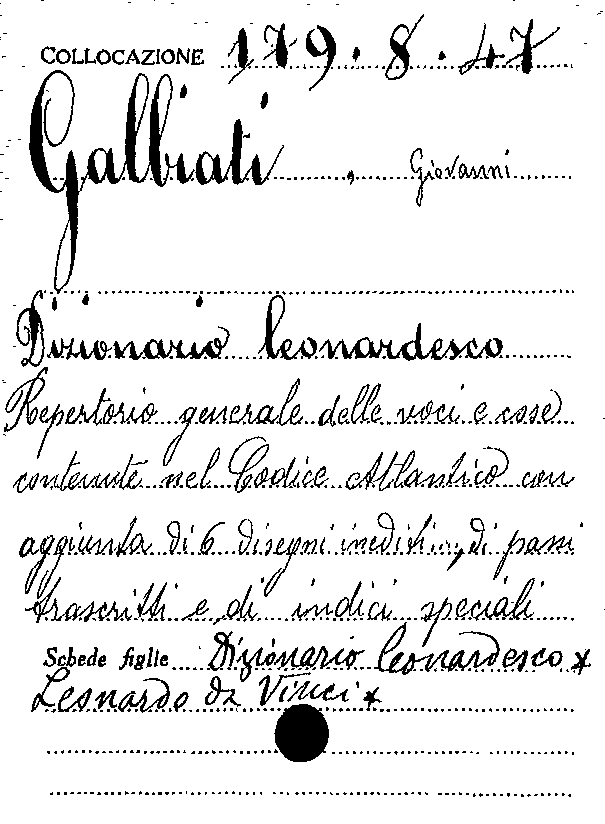 COLLOCAZIONE 179.8.47
Galbiati, Giovanni
Dizionario leonardesco
Repertorio generale delle voci e cose
contenute nel Codice Atlantico con
aggiunta di 6 disegni inediti..., di passi
trascritti e di indici speciali
Schede figlie Dizionario leonardesco *
Leonardo da Vinci *